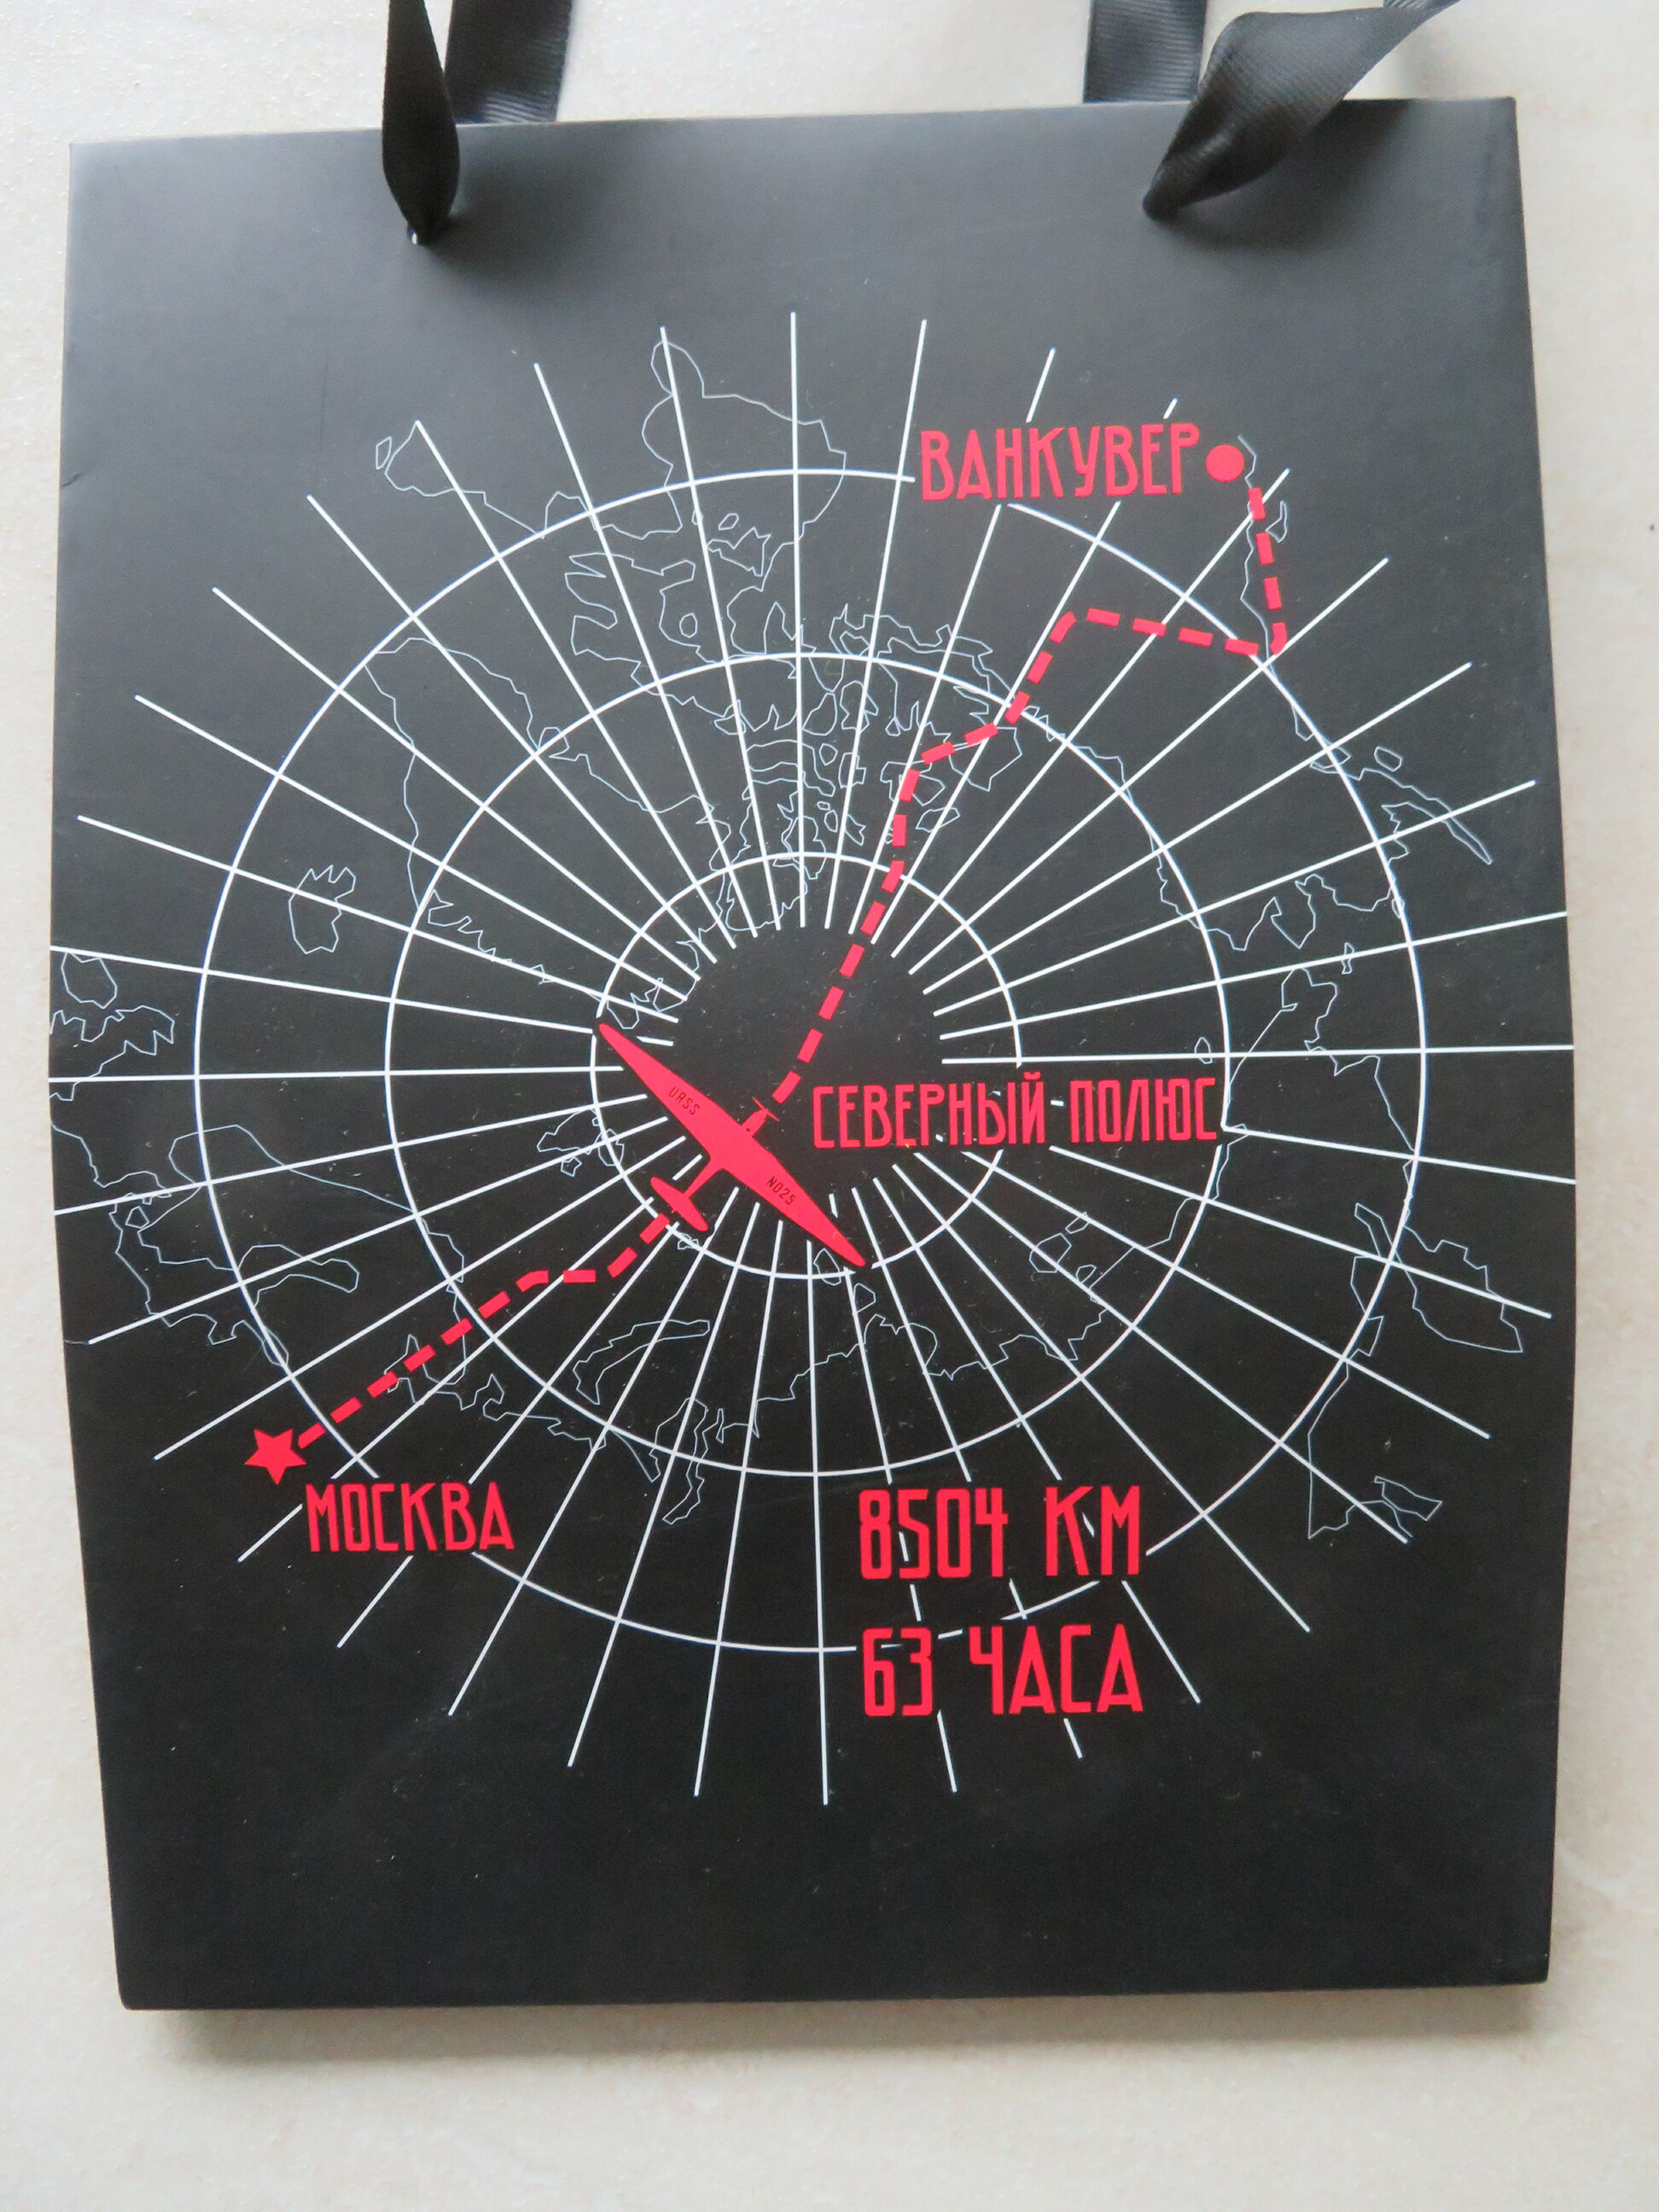 ВАНКУВЕР
URSS
СЕВЕРНЫЙ ПОЛЮС
NO25
МОСКВА
8504 КМ
63 ЧАСА